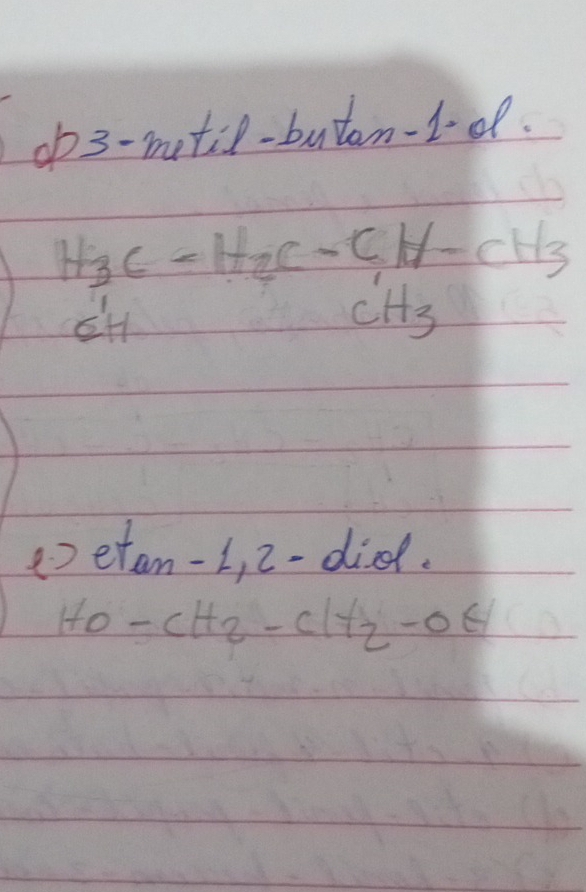 d) 3-metil-butan-1-ol.
H3C - H2C - CH - CH3
OH CH3
e) etan-1,2-diol.
HO - CH2 - CH2 - OH